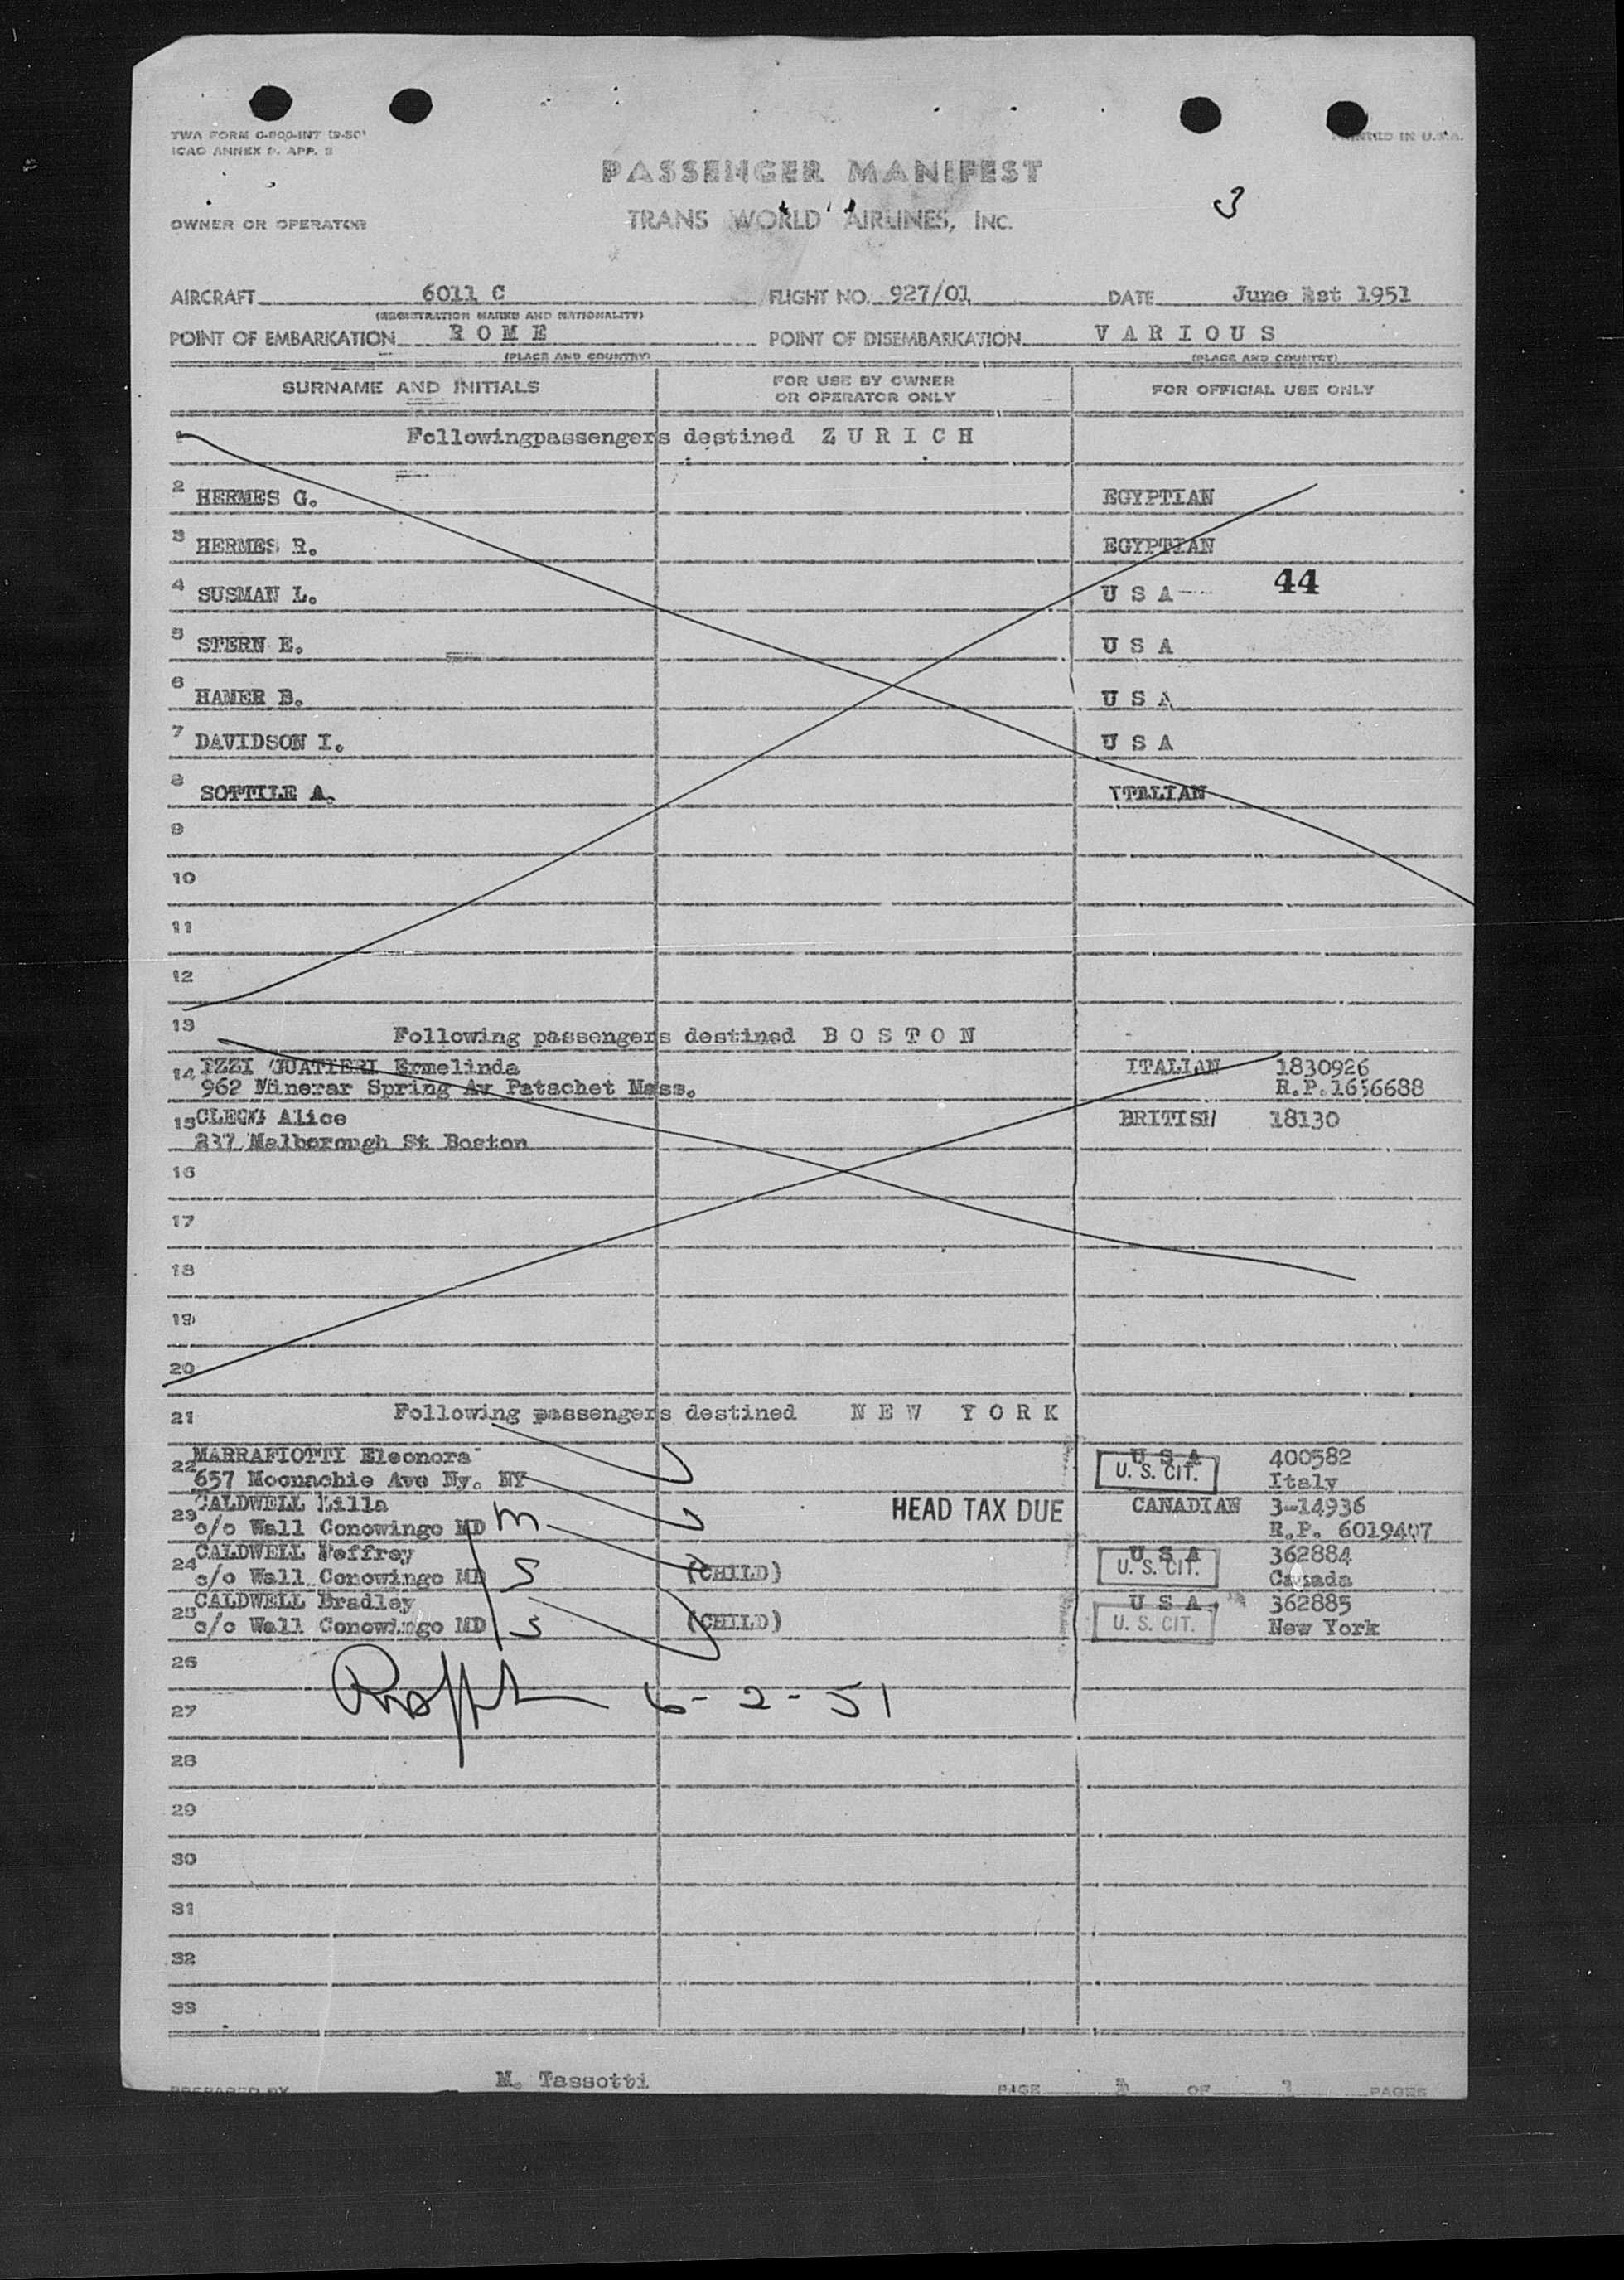 TWA FORM C-800-INT (9-50)
ICAO ANNEX 9. APP. 2
PRINTED IN U.S.A.
PASSENGER MANIFEST
3
OWNER OR OPERATOR
TRANS WORLD AIRLINES, INC.
AIRCRAFT 6011 C FLIGHT NO. 927/01 DATE June 1st 1951
(REGISTRATION MARKS AND NATIONALITY)
POINT OF EMBARKATION ROME POINT OF DISEMBARKATION VARIOUS
(PLACE AND COUNTRY) (PLACE AND COUNTRY)
SURNAME AND INITIALS FOR USE BY OWNER OR OPERATOR ONLY FOR OFFICIAL USE ONLY
1 Followingpassengers destined ZURICH
2 HERMES G. EGYPTIAN
3 HERMES R. EGYPTIAN
4 SUSMAN L. U S A 44
5 STERN E. U S A
6 HAMER B. U S A
7 DAVIDSON I. U S A
8 SOTTILE A. ITALIAN
9
10
11
12
13 Following passengers destined BOSTON
14 IZZI GUATIERI Ermelinda ITALIAN 1830926
962 Minerar Spring Av Patachet Mass. R.P.1656688
15 CLEGG Alice BRITISH 18130
237 Malborough St Boston
16
17
18
19
20
21 Following passengers destined NEW YORK
22 MARRAFIOTTI Eleonora U S A 400582
657 Moonachie Ave Ny. NY U. S. CIT. Italy
23 CALDWELL Lilla HEAD TAX DUE CANADIAN 3-14936
c/o Wall Conowingo MD M R.P. 6019407
24 CALDWELL Jeffrey U S A 362884
c/o Wall Conowingo MD S (CHILD) U. S. CIT. Canada
25 CALDWELL Bradley U S A 362885
c/o Wall Conowingo MD S (CHILD) U. S. CIT. New York
26
6-2-51
27
28
29
30
31
32
33
PREPARED BY M. Tassotti PAGE OF PAGES